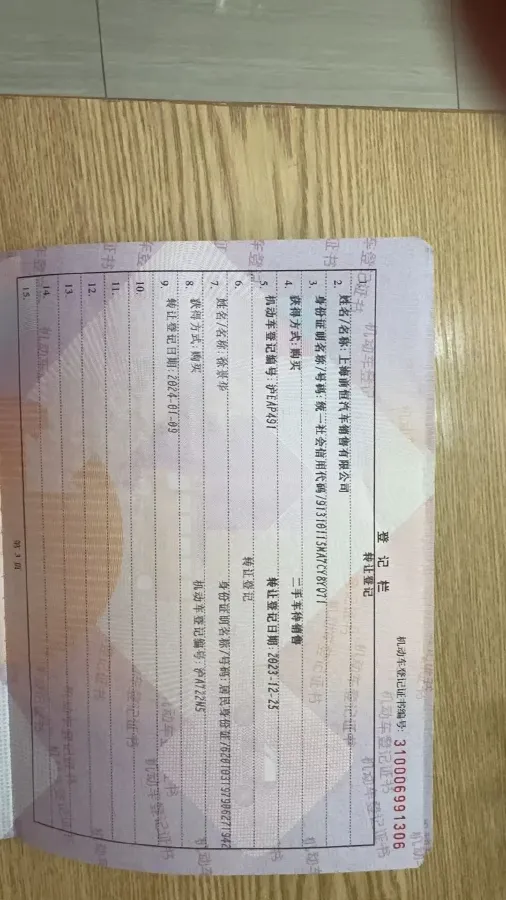 机动车登记证书编号: 310006991306
登 记 栏
1. 转让登记
2. 姓名/名称: 上海
汽车销售有限公司
3. 身份证明名称/号码: 统一社会信用代码/91310115MA7CY8YQ71
4. 获得方式: 购买 二手车待销售
5. 机动车登记编号: 沪EAP491 转让登记日期: 2023-12-25
6. 转让登记
7. 姓名/名称: 张景华 身份证明名称/号码: 居民身份证/
8. 获得方式: 购买 机动车登记编号: 沪A722M5
9. 转让登记日期: 2024-01-09
10.
11.
12.
13.
14.
15.
第 3 页